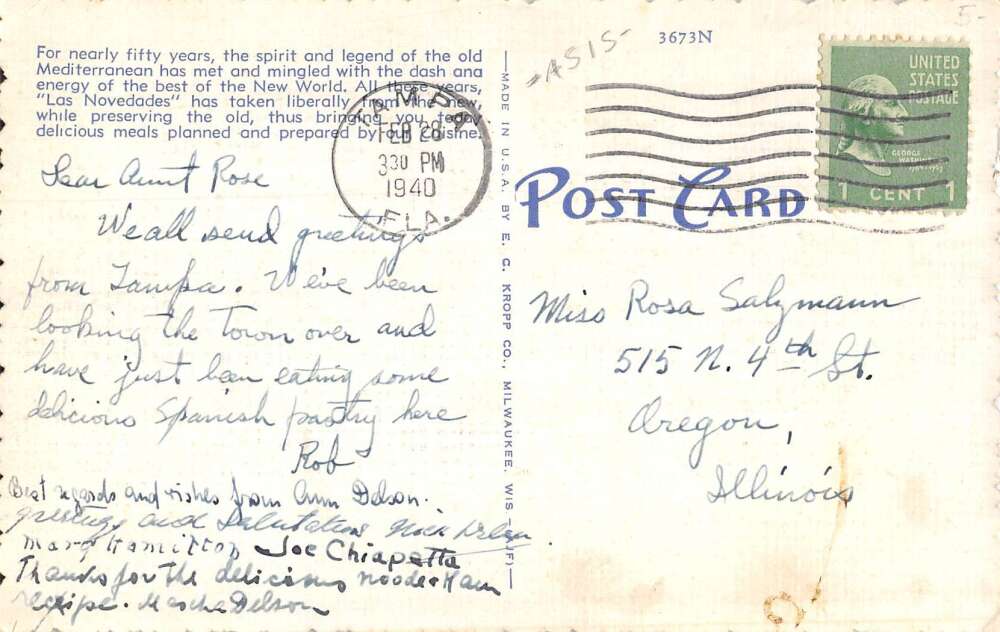 5-
-ASIS-
3673N
For nearly fifty years, the spirit and legend of the old
Mediterranean has met and mingled with the dash and
energy of the best of the New World. All these years,
"Las Novedades" has taken liberally from the new,
while preserving the old, thus bringing you today
delicious meals planned and prepared by our Cuisine.
TAMPA
FEB 28
330 PM
1940
FLA.
UNITED
STATES
POSTAGE
GEORGE
1 CENT 1
POST CARD
MADE IN U.S.A. BY E. C. KROPP CO., MILWAUKEE, WIS.
Dear Aunt Rose
We all send greetings
from Tampa. We've been
looking the town over and
have just been eating some
delicious Spanish pastry here
Rob
Best regards and wishes from Ann Delson.
greetings and Salutations Nock Delson
Marg Hamilton Joe Chiapetta
Thanks for the delicious noodle & Ham
recipe. Mascha Delson
Miss Rosa Salzmann
515 N. 4th St.
Oregon,
Illinois